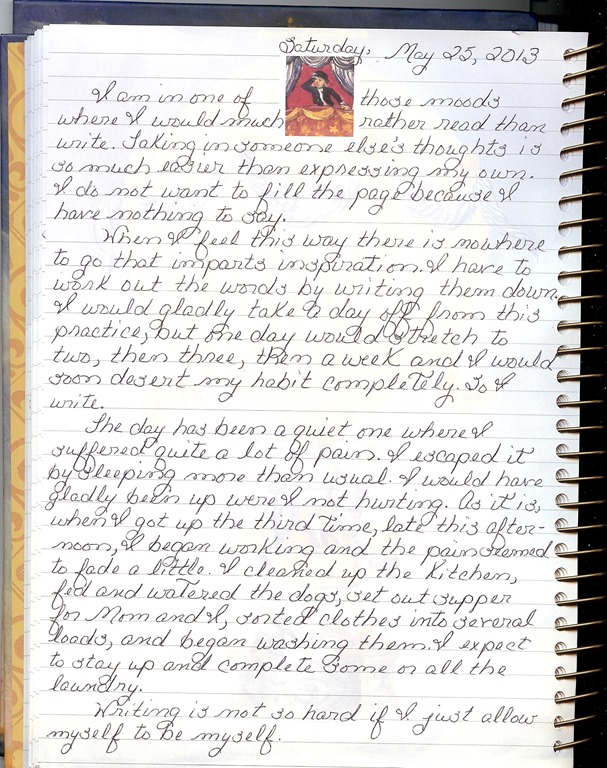 Saturday, May 25, 2013
I am in one of those moods
where I would much rather read than
write. Taking in someone else's thoughts is
so much easier than expressing my own.
I do not want to fill the page because I
have nothing to say.
When I feel this way there is nowhere
to go that imparts inspiration. I have to
work out the words by writing them down.
I would gladly take a day off from this
practice, but one day would stretch to
two, then three, then a week and I would
soon desert my habit completely. So I
write.
The day has been a quiet one where I
suffered quite a lot of pain. I escaped it
by sleeping more than usual. I would have
gladly been up were I not hurting. As it is,
when I got up the third time, late this after-
noon, I began working and the pain seemed
to fade a little. I cleaned up the kitchen,
fed and watered the dogs, set out supper
for Mom and I, sorted clothes into several
loads, and began washing them. I expect
to stay up and complete some or all the
laundry.
Writing is not so hard if I just allow
myself to be myself.